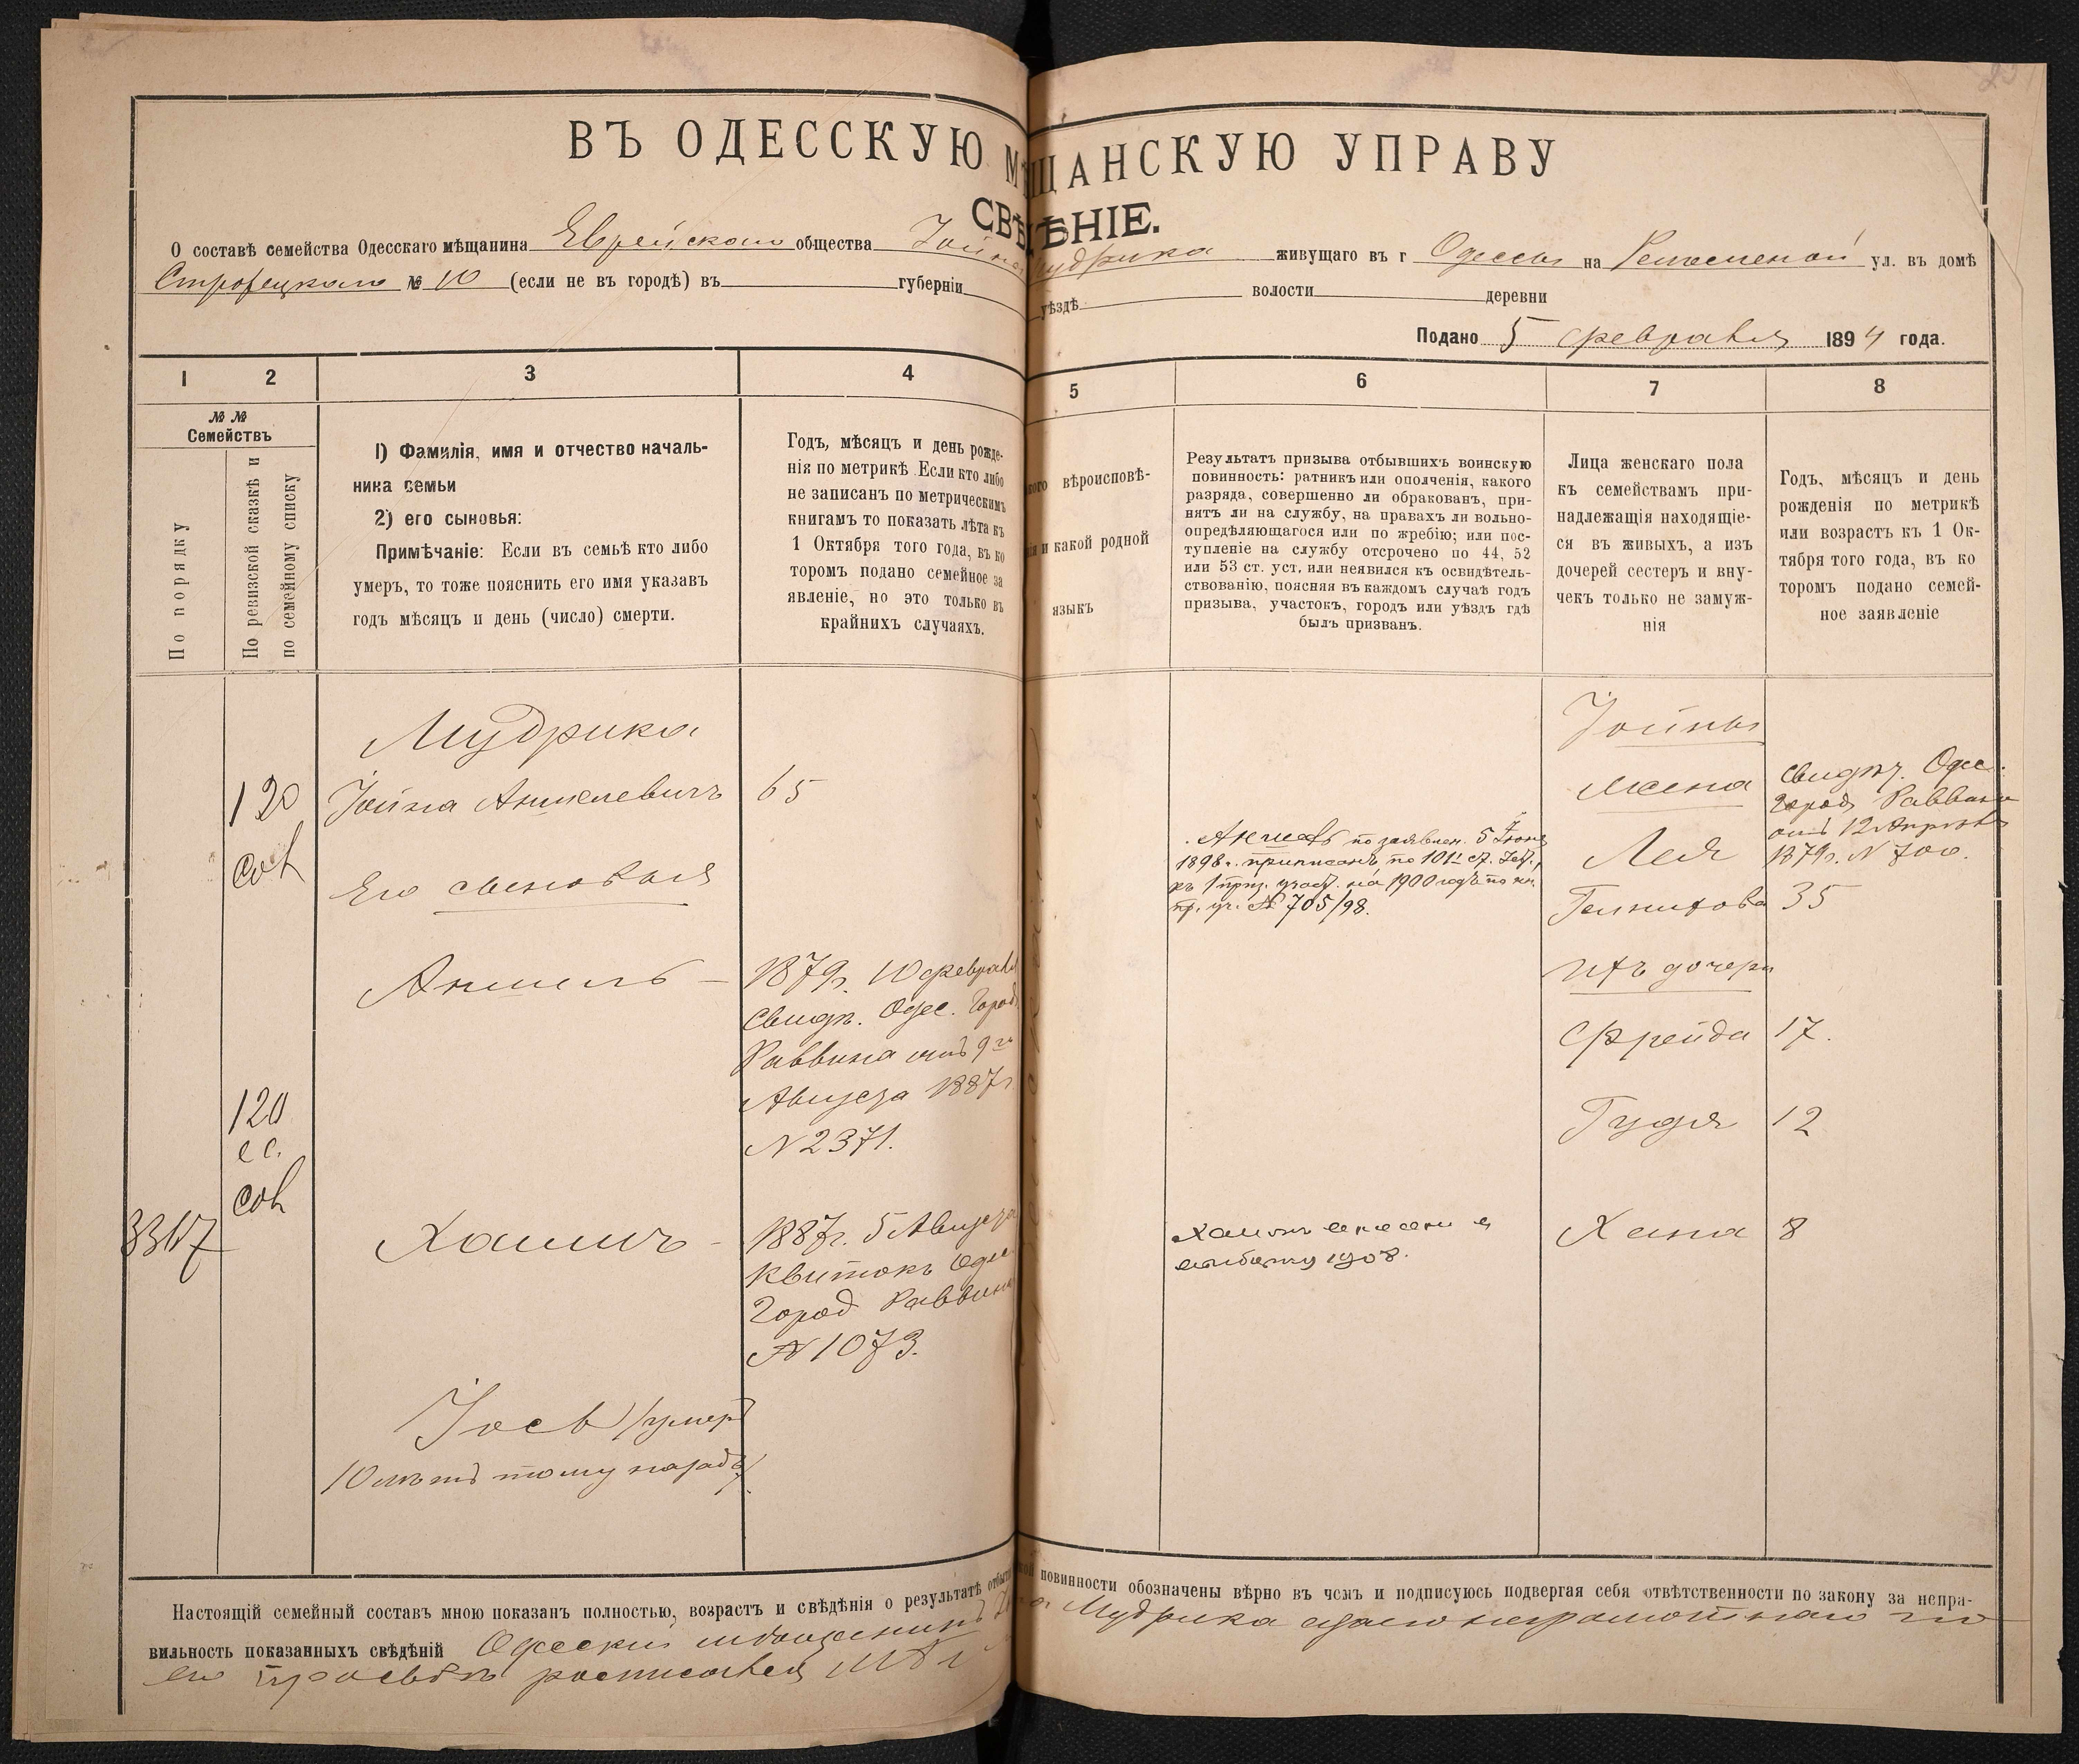 ВЪ ОДЕССКУЮ МѢЩАНСКУЮ УПРАВУ
СВѢДѢНІЕ.
О составѣ семейства Одесскаго мѣщанина Еврейскаго общества Іойна Мудрика живущаго въ г Одессы на ул. въ домѣ
№ 10 (если не въ городѣ) въ губерніи уѣздѣ волости деревни
Подано 5 февраля 1894 года.
1 2 3 4 5 6 7 8
№ № Семействъ
По порядку
По ревизской сказкѣ и
по семейному списку
1) Фамилія, имя и отчество началь-
ника семьи
2) его сыновья:
Примѣчаніе: Если въ семьѣ кто либо
умеръ, то тоже пояснить его имя указавъ
годъ мѣсяцъ и день (число) смерти.
Годъ, мѣсяцъ и день рожде-
нія по метрикѣ Если кто либо
не записанъ по метрическимъ
книгамъ то показать лѣта къ
1 Октября того года, въ ко
торомъ подано семейное за
явленіе, но это только въ
крайнихъ случаяхъ.
вѣроисповѣ-
и какой родной
языкъ
Результатъ призыва отбывшихъ воинскую
повинность: ратникъ или ополченія, какого
разряда, совершенно ли обракованъ, при-
нятъ ли на службу, на правахъ ли вольно-
опредѣляющагося или по жребію; или пос-
тупленіе на службу отсрочено по 44, 52
или 53 ст. уст, или неявился къ освидѣтель-
ствованію, поясняя въ каждомъ случаѣ годъ
призыва, участокъ, городъ или уѣздъ гдѣ
былъ призванъ.
Лица женскаго пола
къ семействамъ при-
надлежащія находящіе-
ся въ живыхъ, а изъ
дочерей сестеръ и вну-
чекъ только не замуж-
нія
Годъ, мѣсяцъ и день
рожденія по метрикѣ
или возрастъ къ 1 Ок-
тября того года, въ ко
торомъ подано семей-
ное заявленіе
Мудрика
120 Іойна Аншелевичъ 65
Его сыновья
Аншель – 1879г. 10 февраля
Свидѣт. Одес. Город.
Раввина отъ 9го
Августа 1887г
№ 2371.
120
3317 Хаимъ – 1887г. 5 Августа
Квитокъ Одес
Город Раввина
№ 1073.
Іось /умеръ
10 лѣтъ тому назадъ/
Аншель по заявлен. 5 Іюня
1898г. приписанъ по 101 ст.
къ 1 приз. участ. на 1900 годъ по кн.
пр. уч. № 705/98.
Хаимъ
1908.
Іойны
жена
Лея
35
ихъ дочери
Фрейда 17.
Гудя 12
Хана 8
Свидѣт. Одес.
Город. Раввина
отъ 12 Апрѣля
1879г. № 700.
Настоящій семейный составъ мною показанъ полностью, возрастъ и свѣдѣнія о результатѣ повинности обозначены вѣрно въ чемъ и подписуюсь подвергая себя отвѣтственности по закону за непра-
вильность показанныхъ свѣдѣній Одесскій мѣщанинъ Мудрика неграмотнаго по
его просьбѣ росписался